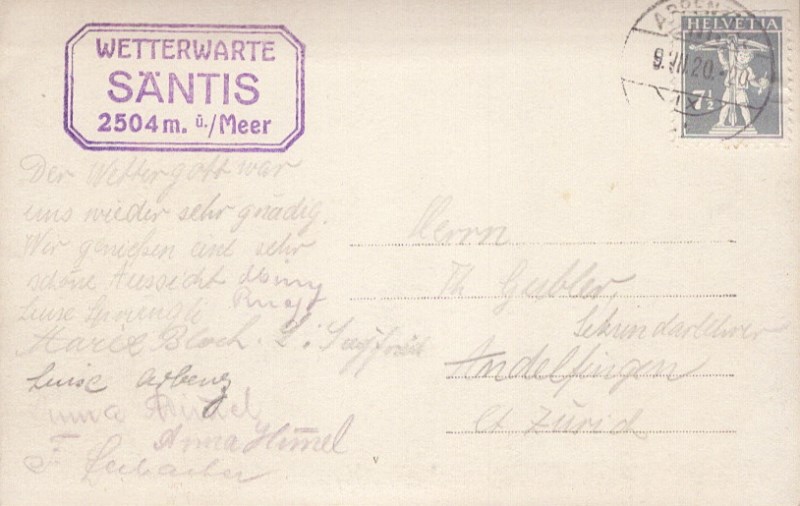 WETTERWARTE
SÄNTIS
2504 m. ü./Meer
HELVETIA
7½
Der Wettergott war
uns wieder sehr gnädig.
Wir genießen eine sehr
schöne Aussicht
Luise Sprüngli
Marie Bloch.
Luise Arbenz
Anna Himel
Herrn
Th. Gubler,
Sekundarlehrer
Andelfingen
Ct. Zürich